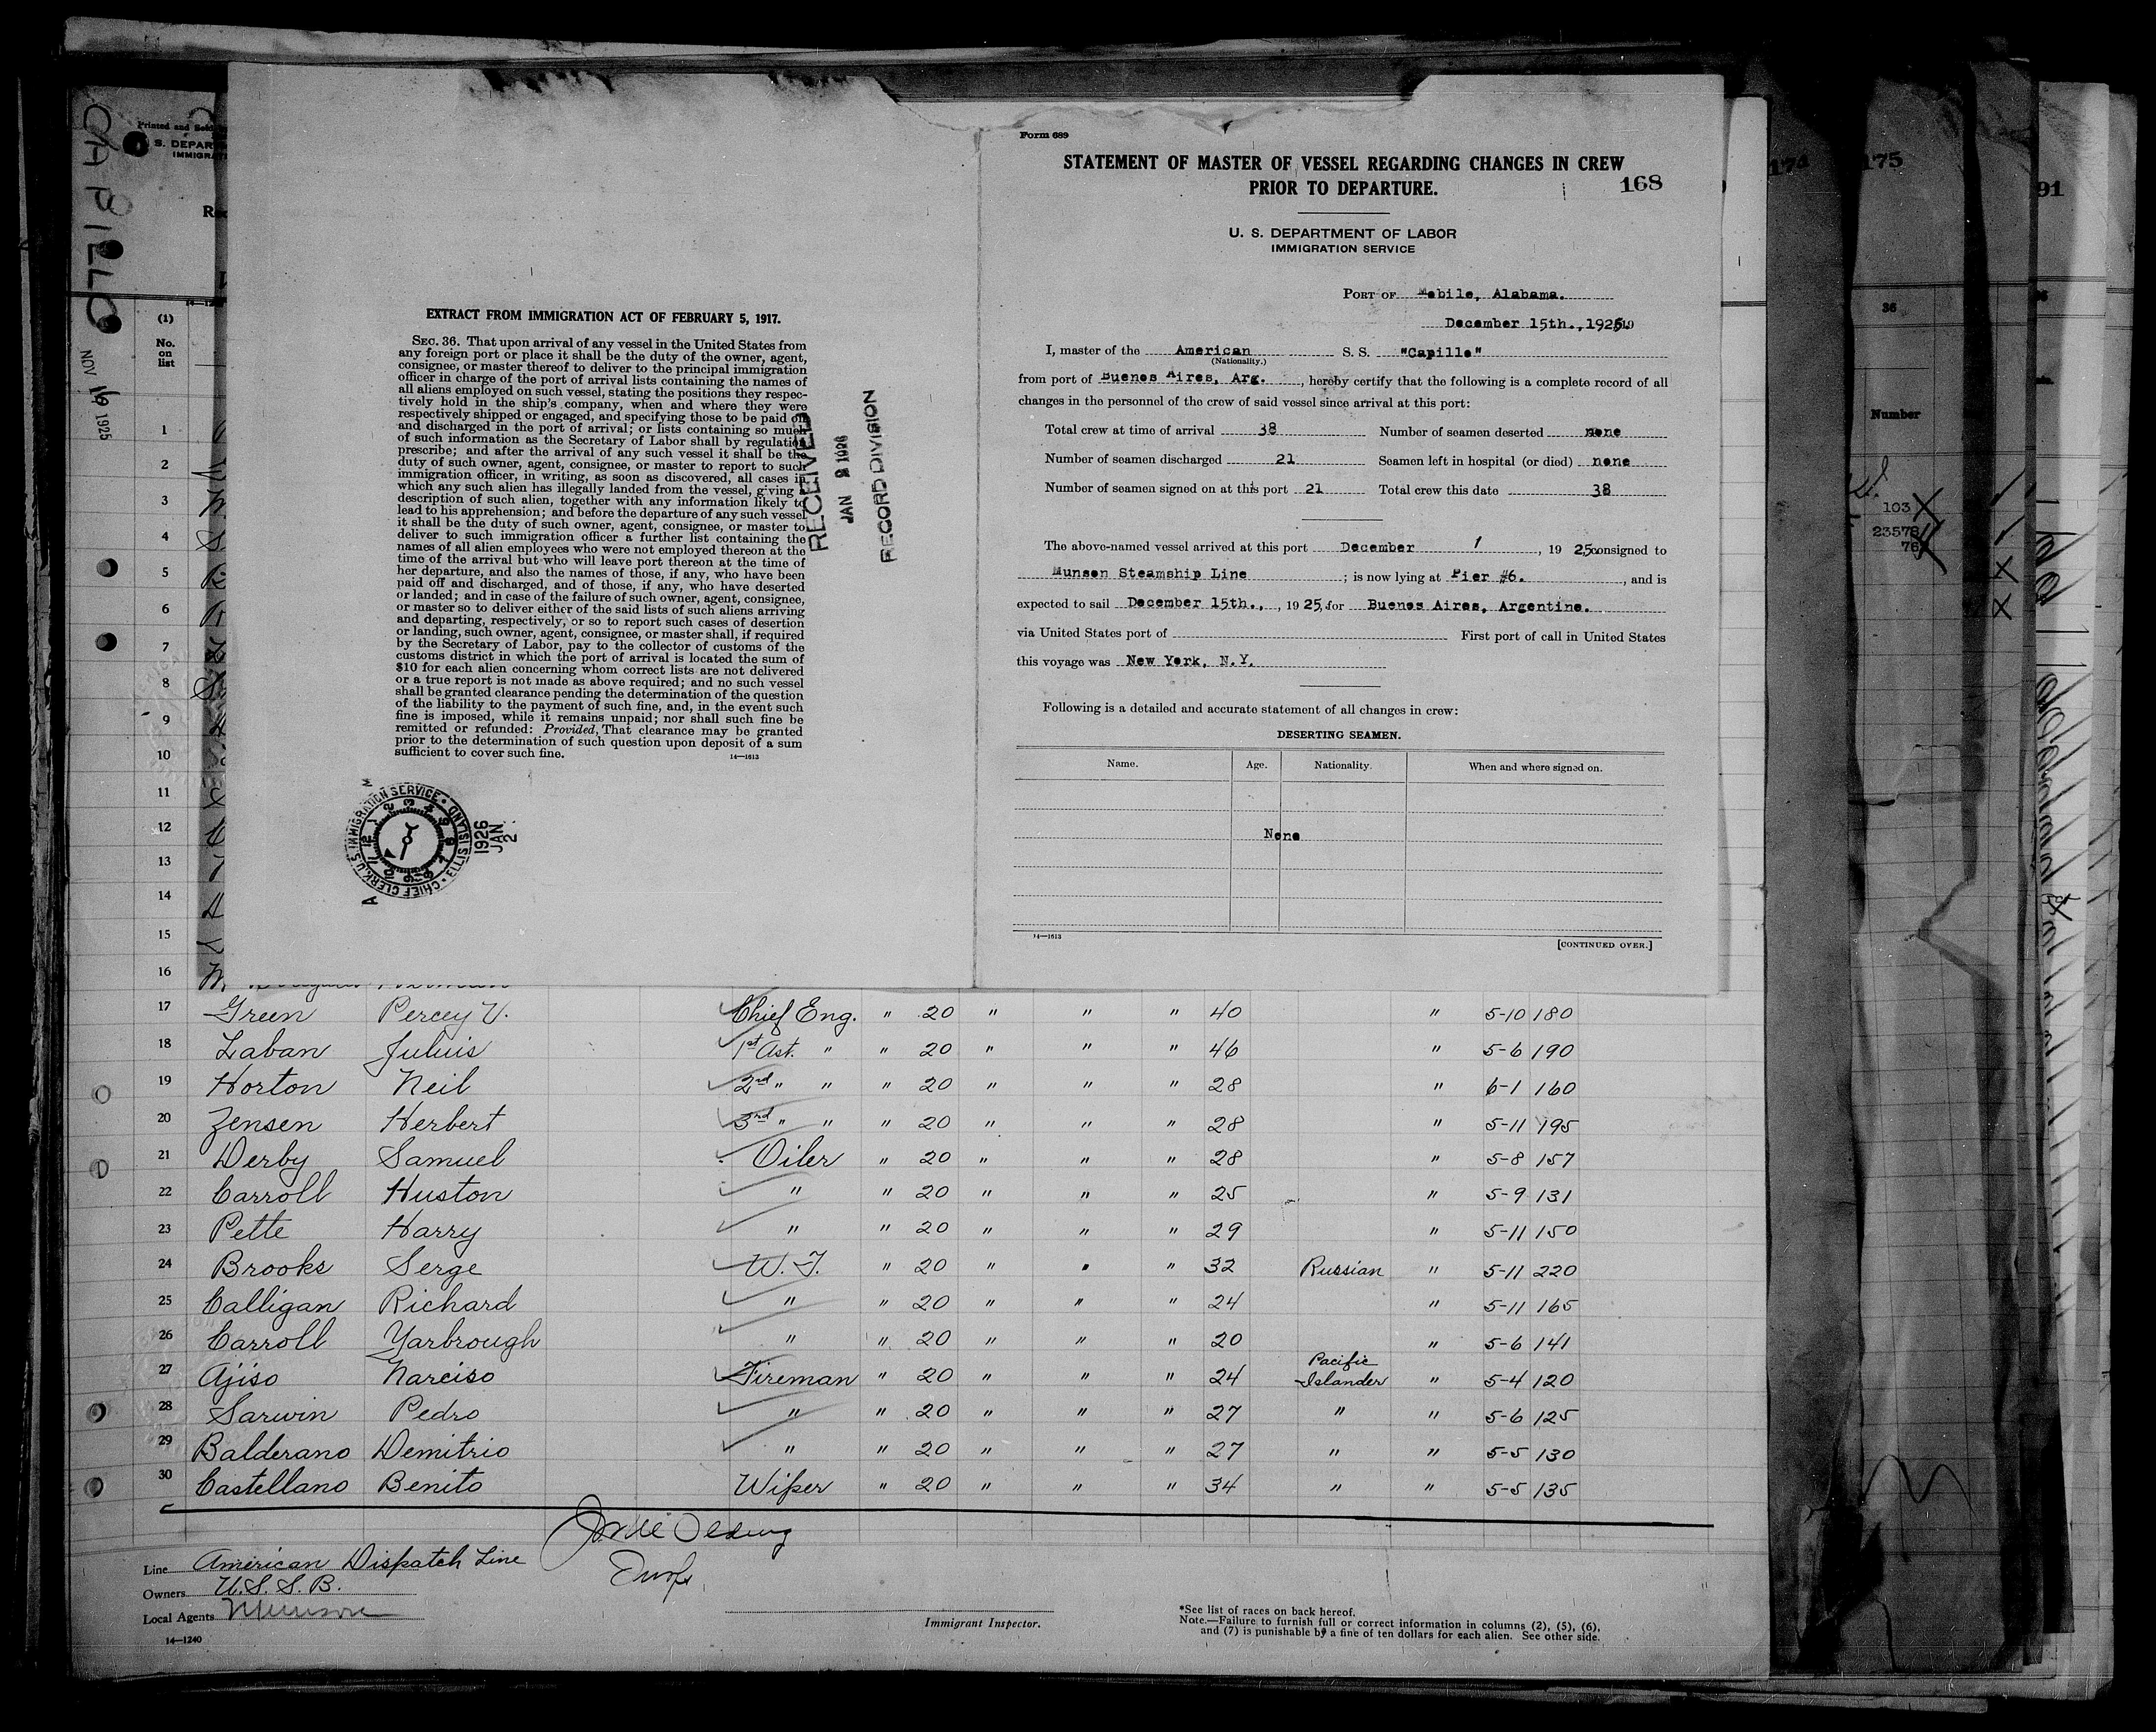 CAPILLO
NOV 1925
Printed and Sold
S. DEPAR
IMMIGRAT
(1)
No.
on
list
1
2
3
4
5
6
7
8
9
10
11
12
13
14
15
16
EXTRACT FROM IMMIGRATION ACT OF FEBRUARY 5, 1917.
SEC. 36. That upon arrival of any vessel in the United States from
any foreign port or place it shall be the duty of the owner, agent,
consignee, or master thereof to deliver to the principal immigration
officer in charge of the port of arrival lists containing the names of
all aliens employed on such vessel, stating the positions they respec-
tively hold in the ship's company, when and where they were
respectively shipped or engaged, and specifying those to be paid off
and discharged in the port of arrival; or lists containing so much
of such information as the Secretary of Labor shall by regulation
prescribe; and after the arrival of any such vessel it shall be the
duty of such owner, agent, consignee, or master to report to such
immigration officer, in writing, as soon as discovered, all cases in
which any such alien has illegally landed from the vessel, giving a
description of such alien, together with any information likely to
lead to his apprehension; and before the departure of any such vessel
it shall be the duty of such owner, agent, consignee, or master to
deliver to such immigration officer a further list containing the
names of all alien employees who were not employed thereon at the
time of the arrival but who will leave port thereon at the time of
her departure, and also the names of those, if any, who have been
paid off and discharged, and of those, if any, who have deserted
or landed; and in case of the failure of such owner, agent, consignee,
or master so to deliver either of the said lists of such aliens arriving
and departing, respectively, or so to report such cases of desertion
or landing, such owner, agent, consignee, or master shall, if required
by the Secretary of Labor, pay to the collector of customs of the
customs district in which the port of arrival is located the sum of
$10 for each alien concerning whom correct lists are not delivered
or a true report is not made as above required; and no such vessel
shall be granted clearance pending the determination of the question
of the liability to the payment of such fine, and, in the event such
fine is imposed, while it remains unpaid; nor shall such fine be
remitted or refunded: Provided, That clearance may be granted
prior to the determination of such question upon deposit of a sum
sufficient to cover such fine.
14—1613
RECEIVED
JAN 2 1926
RECORD DIVISION
CHIEF CLERK, U.S. IMMIGRATION SERVICE • ELLIS ISLAND
1926
JAN
2
Form 689
STATEMENT OF MASTER OF VESSEL REGARDING CHANGES IN CREW
PRIOR TO DEPARTURE.
168
U. S. DEPARTMENT OF LABOR
IMMIGRATION SERVICE
PORT OF Mobile, Alabama.
December 15th., 1925.
I, master of the American S. S. "Capillo"
(Nationality.)
from port of Buenos Aires, Arg. , hereby certify that the following is a complete record of all
changes in the personnel of the crew of said vessel since arrival at this port:
Total crew at time of arrival 38 Number of seamen deserted none
Number of seamen discharged 21 Seamen left in hospital (or died) none
Number of seamen signed on at this port 21 Total crew this date 38
The above-named vessel arrived at this port December 1, 1925 consigned to
Munson Steamship Line ; is now lying at Pier #6. , and is
expected to sail December 15th., , 1925, for Buenos Aires, Argentine.
via United States port of First port of call in United States
this voyage was New York, N.Y.
Following is a detailed and accurate statement of all changes in crew:
DESERTING SEAMEN.
Name. Age. Nationality. When and where signed on.
None
14—1613
[CONTINUED OVER.]
17 Green Percey V. Chief Eng. " 20 " " " 40 " 5-10 180
18 Laban Juluis 1st Ast. " " 20 " " " 46 " 5-6 190
19 Horton Neil 2nd " " " 20 " " " 28 " 6-1 160
20 Jensen Herbert 3rd " " " 20 " " " 28 " 5-11 195
21 Derby Samuel Oiler " 20 " " " 28 " 5-8 157
22 Carroll Huston " " 20 " " " 25 " 5-9 131
23 Pette Harry " " 20 " " " 29 " 5-11 150
24 Brooks Serge W. T. " 20 " " " 32 Russian " 5-11 220
25 Calligan Richard " " 20 " " " 24 " 5-11 165
26 Carroll Yarbrough " " 20 " " " 20 " 5-6 141
27 Ajiso Narciso Fireman " 20 " " " 24 Pacific Islander " 5-4 120
28 Sarwin Pedro " " 20 " " " 27 " " 5-6 125
29 Balderano Demitrio " " 20 " " " 27 " " 5-5 130
30 Castellano Benito Wiper " 20 " " " 34 " " 5-5 135
Line American Dispatch Line
Owners U.S.S.B.
Local Agents Munson
14—1240
Immigrant Inspector.
*See list of races on back hereof.
Note.—Failure to furnish full or correct information in columns (2), (5), (6),
and (7) is punishable by a fine of ten dollars for each alien. See other side.
174
175
36
Number
103
23578
76
91